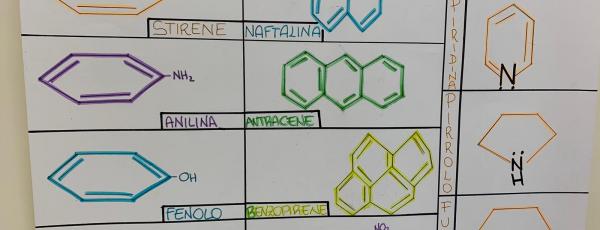 STIRENE
NAFTALINA
PIRIDINA
N
NH₂
ANILINA
ANTRACENE
PIRROLO
N
H
OH
FENOLO
BENZOPIRENE
FU
NO₂